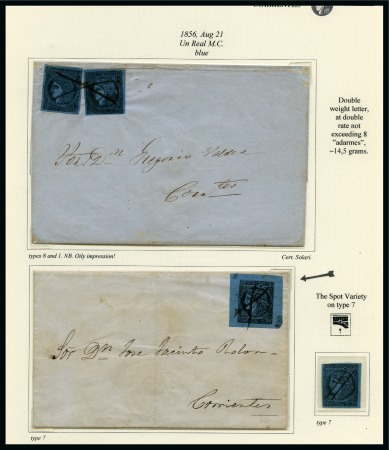 CORRIENTES
1856, Aug 21
Un Real M.C.
blue
Double
weight letter,
at double
rate not
exceeding 8
"adarmes",
~14,5 grams.
Sor Dn Gregorio Valdez
Corrtes
types 8 and 1. NB. Oily impression!
Cert. Solari.
The Spot Variety
on type 7
Sor Dn Jose Jacinto Rolon
Corrientes
type 7
type 7